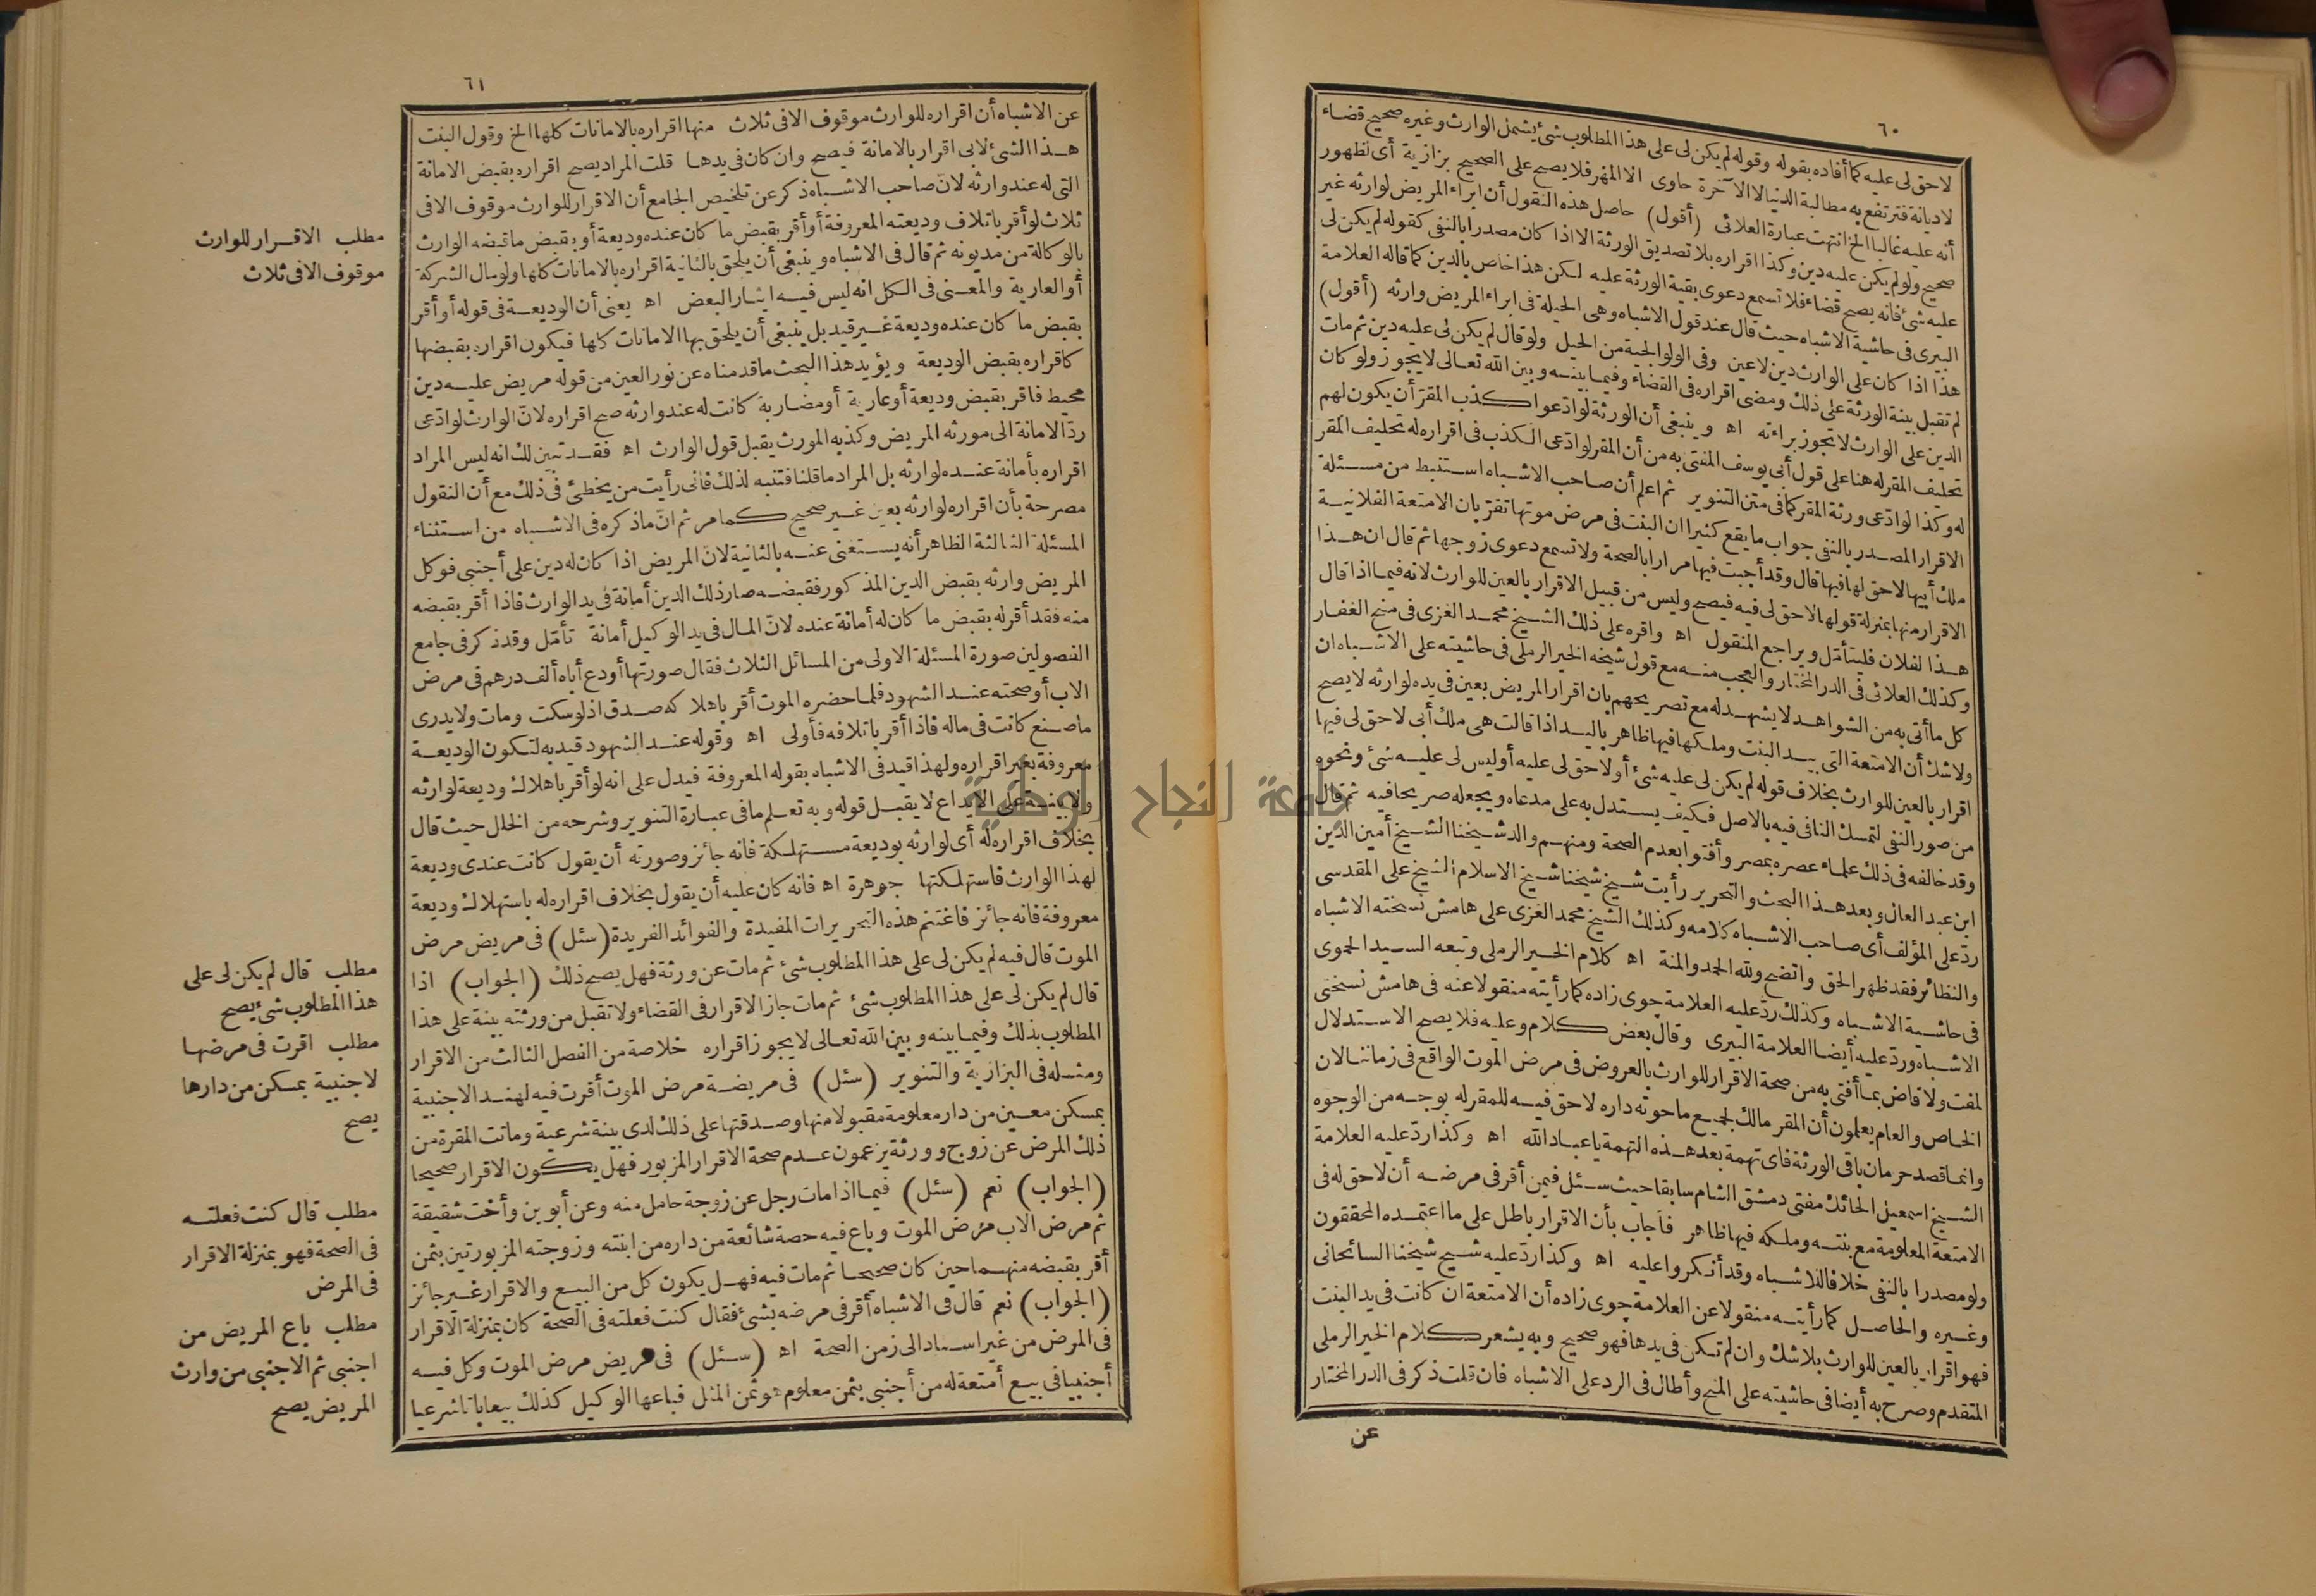 ٦٠
لاحق لى عليه كما أفاده بقوله وقوله لم يكن لى على هذا المطلوب شئ يشمل الوارث وغيره صحيح قضاء
لا ديانة فترتفع به مطالبة الدنيا لا الآخرة حاوى الا المهر فلا يصح على الصحيح بزازية أى لظهور
أنه عليه غالبا الخ انتهت عبارة العلائى (أقول) حاصل هذه النقول أن ابراء المريض لوارثه غير
صحيح ولو لم يكن عليه دين وكذا اقراره بلا تصديق الورثة الا اذا كان مصدرا بالنفى كقوله لم يكن لى
عليه شئ فانه يصح قضاء فلا تسمع دعوى بقية الورثة عليه لكن هذا خاص بالدين كما قاله العلامة
البيرى فى حاشية الاشباه حيث قال عند قول الاشباه وهى الحيلة فى ابراء المريض وارثه (أقول)
هذا اذا كان على الوارث دين لا عين وفى الولوالجية من الحيل ولو قال لم يكن لى عليه دين ثم مات
لم تقبل بينة الورثة على ذلك ومضى اقراره فى القضاء وفيما بينه وبين الله تعالى لا يجوز ولو كان
الدين على الوارث لا تجوز براءته اه وينبغى أن الورثة لو ادعوا كذب المقر أن يكون لهم
تحليف المقر له هنا على قول أبى يوسف المفتى به من أن المقر لو ادعى الكذب فى اقراره له تحليف المقر
له وكذا لو ادعى ورثة المقر كما فى متن التنوير ثم اعلم أن صاحب الاشباه استنبط من مسئلة
الاقرار المصدر بالنفى جواب ما يقع كثيرا ان البنت فى مرض موتها تقر بان الامتعة الفلانية
ملك أبيها لا حق لها فيها قال وقد أجبت فيها مرارا بالصحة ولا تسمع دعوى زوجها ثم قال ان هذا
الاقرار منها بمنزلة قولها لا حق لى فيه فيصح وليس من قبيل الاقرار بالعين للوارث لانه فيما اذا قال
هذا لفلان فليتأمل ويراجع المنقول اه واقره على ذلك الشيخ محمد الغزى فى منح الغفار
وكذلك العلائى فى الدر المختار والعجب منه مع قول شيخه الخير الرملى فى حاشيته على الاشباه ان
كل ما أتى به من الشواهد لا يشهد له مع تصريحهم بان اقرار المريض بعين فى يده لوارثه لا يصح
ولا شك أن الامتعة التى بيد البنت وملكها فيها ظاهر باليد اذا قالت هى ملك أبى لا حق لى فيها
اقرار بالعين للوارث بخلاف قوله لم يكن لى عليه شئ أو لا حق لى عليه أو ليس لى عليه شئ ونحوه
من صور النفى لتمسك النافى فيه بالاصل فكيف يستدل به على مدعاه ويجعله صريحا فيه ثم قال
وقد خالفه فى ذلك علماء عصره بمصر وأفتوا بعدم الصحة ومنهم والد شيخنا الشيخ أمين الدين
ابن عبد العال وبعد هذا البحث والتحرير رأيت شيخ شيخنا شيخ الاسلام الشيخ على المقدسى
رد على المؤلف أى صاحب الاشباه كلامه وكذلك الشيخ محمد الغزى على هامش نسخته الاشباه
والنظائر فقد ظهر الحق واتضح ولله الحمد والمنة اه كلام الخير الرملى وتبعه السيد الحموى
فى حاشية الاشباه وكذلك رد عليه العلامة جوى زاده كما رأيته منقولا عنه فى هامش نسختى
الاشباه ورد عليه أيضا العلامة البيرى وقال بعض كلام وعليه فلا يصح الاستدلال
لمفت ولا قاض بما أفتى به من صحة الاقرار للوارث بالعروض فى مرض الموت الواقع فى زماننا لان
الخاص والعام يعلمون أن المقر مالك لجميع ما حوته داره لا حق فيه للمقر له بوجه من الوجوه
وانما قصد حرمان باقى الورثة فاى تهمة بعد هذه التهمة يا عباد الله اه وكذا رد عليه العلامة
الشيخ اسمعيل الحائك مفتى دمشق الشام سابقا حيث سئل فيمن أقر فى مرضه أن لا حق له فى
الامتعة المعلومة مع بنته وملكه فيها ظاهر فأجاب بأن الاقرار باطل على ما اعتمده المحققون
ولو مصدرا بالنفى خلافا للاشباه وقد أنكروا عليه اه وكذا رد عليه شيخ شيخنا السائحانى
وغيره والحاصل كما رأيته منقولا عن العلامة جوى زاده أن الامتعة ان كانت فى يد البنت
فهو اقرار بالعين للوارث بلا شك وان لم تكن فى يدها فهو صحيح وبه يشعر كلام الخير الرملى
المتقدم وصرح به أيضا فى حاشيته على المنح وأطال فى الرد على الاشباه فان قلت ذكر فى الدر المختار
عن
٦١
عن الاشباه أن اقراره للوارث موقوف الا فى ثلاث منها اقراره بالامانات كلها الخ وقول البنت
هذا الشئ لابى اقرار بالامانة فيصح وان كان فى يدها قلت المراد يصح اقراره بقبض الامانة
التى له عند وارثه لان صاحب الاشباه ذكر عن تلخيص الجامع أن الاقرار للوارث موقوف الا فى
ثلاث لو أقر باتلاف وديعته المعروفة أو أقر بقبض ما كان عنده وديعة أو بقبض ما قبضه الوارث
بالوكالة من مديونه ثم قال فى الاشباه وينبغى أن يلحق بالثانية اقراره بالامانات كلها ولو مال الشركة
أو العارية والمعنى فى الكل انه ليس فيه ايثار البعض اه يعنى أن الوديعة فى قوله أو أقر
بقبض ما كان عنده وديعة غير قيد بل ينبغى أن يلحق بها الامانات كلها فيكون اقراره بقبضها
كاقراره بقبض الوديعة ويؤيد هذا البحث ما قدمناه عن نور العين من قوله مريض عليه دين
محيط فاقر بقبض وديعة أو عارية أو مضاربة كانت له عند وارثه صح اقراره لان الوارث لو ادعى
رد الامانة الى مورثه المريض وكذبه المورث يقبل قول الوارث اه فقد تبين لك انه ليس المراد
اقراره بأمانة عنده لوارثه بل المراد ما قلنا فتنبه لذلك فانى رأيت من يخطئ فى ذلك مع أن النقول
مصرحة بأن اقراره لوارثه بعين غير صحيح كما مر ثم ان ما ذكره فى الاشباه من استثناء
المسئلة الثالثة الظاهر أنه يستغنى عنه بالثانية لان المريض اذا كان له دين على أجنبى فوكل
المريض وارثه بقبض الدين المذكور فقبضه صار ذلك الدين أمانة فى يد الوارث فاذا أقر بقبضه
منه فقد أقر له بقبض ما كان له أمانة عنده لان المال فى يد الوكيل أمانة تأمل وقد ذكر فى جامع
الفصولين صورة المسئلة الاولى من المسائل الثلاث فقال صورتها أودع أباه ألف درهم فى مرض
الاب أو صحته عند الشهود فلما حضره الموت أقر باهلاكه صدق اذ لو سكت ومات ولا يدرى
ما صنع كانت فى ماله فاذا أقر باتلافه فأولى اه وقوله عند الشهود قيد به لتكون الوديعة
معروفة بغير اقراره ولهذا قيد فى الاشباه بقوله المعروفة فيدل على انه لو أقر باهلاك وديعة لوارثه
ولا بينة على الايداع لا يقبل قوله وبه تعلم ما فى عبارة التنوير وشرحه من الخلل حيث قال
بخلاف اقراره له أى لوارثه بوديعة مستهلكة فانه جائز وصورته أن يقول كانت عندى وديعة
لهذا الوارث فاستهلكتها جوهرة اه فانه كان عليه أن يقول بخلاف اقراره له باستهلاك وديعة
معروفة فانه جائز فاغتنم هذه التحريرات المفيدة والفوائد الفريدة (سئل) فى مريض مرض
الموت قال فيه لم يكن لى على هذا المطلوب شئ ثم مات عن ورثة فهل يصح ذلك (الجواب) اذا
قال لم يكن لى على هذا المطلوب شئ ثم مات جاز الاقرار فى القضاء ولا تقبل من ورثته بينة على هذا
المطلوب بذلك وفيما بينه وبين الله تعالى لا يجوز اقراره خلاصة من الفصل الثالث من الاقرار
ومثله فى البزازية والتنوير (سئل) فى مريضة مرض الموت أقرت فيه لهند الاجنبية
بمسكن معين من دار معلومة مقبولا منها وصدقتها على ذلك لدى بينة شرعية وماتت المقرة من
ذلك المرض عن زوج وورثة يزعمون عدم صحة الاقرار المزبور فهل يكون الاقرار صحيحا
(الجواب) نعم (سئل) فيما اذا مات رجل عن زوجة حامل منه وعن أبوين وأخت شقيقة
ثم مرض الاب مرض الموت وباع فيه حصة شائعة من داره من ابنته وزوجته المزبورتين بثمن
أقر بقبضه منهما حين كان صحيحا ثم مات فيه فهل يكون كل من البيع والاقرار غير جائز
(الجواب) نعم قال فى الاشباه أقر فى مرضه بشئ فقال كنت فعلته فى الصحة كان بمنزلة الاقرار
فى المرض من غير اسناد الى زمن الصحة اه (سئل) فى مريض مرض الموت وكل فيه
أجنبيا فى بيع أمتعة له من أجنبى بثمن معلوم هو ثمن المثل فباعها الوكيل كذلك بيعا باتا شرعيا
مطلب الاقرار للوارث
موقوف الا فى ثلاث
مطلب قال لم يكن لى على
هذا المطلوب شئ يصح
مطلب اقرت فى مرضها
لاجنبية بمسكن من دارها
يصح
مطلب قال كنت فعلته
فى الصحة فهو بمنزلة الاقرار
فى المرض
مطلب باع المريض من
اجنبى ثم الاجنبى من وارث
المريض يصح
جامعة النجاح الوطنية